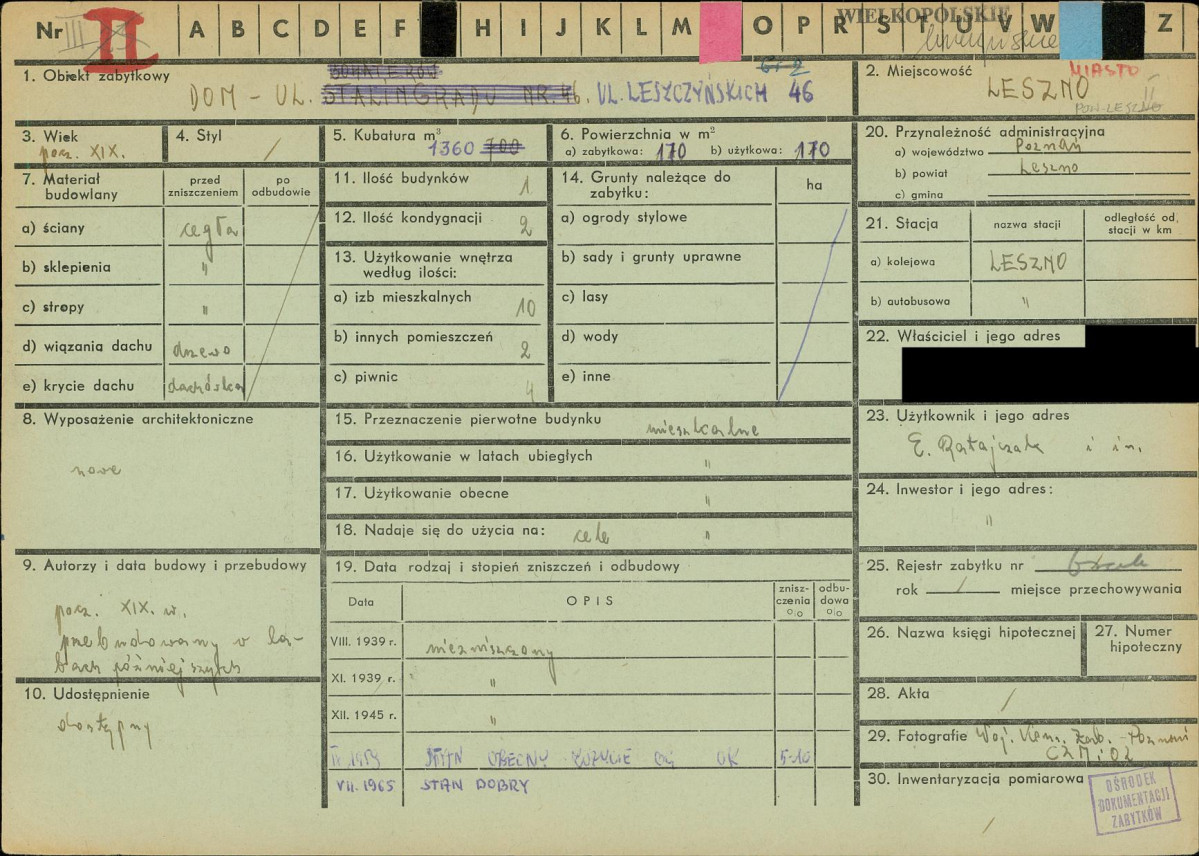 Nr II A B C D E F H I J K L M O P R S T U V W Z
WIELKOPOLSKIE
1. Obiekt zabytkowy
DOM - UL. STALINGRADU NR. 46. UL. LESZCZYŃSKICH 46
2. Miejscowość MIASTO
LESZNO
POW. LESZNO
3. Wiek
pocz. XIX.
4. Styl
/
5. Kubatura m³
1360 700
6. Powierzchnia w m²
a) zabytkowa: 170 b) użytkowa: 170
20. Przynależność administracyjna
a) województwo Poznań
b) powiat Leszno
c) gmina
7. Materiał budowlany
przed zniszczeniem
po odbudowie
a) ściany cegła
b) sklepienia "
c) stropy "
d) wiązania dachu drzewo
e) krycie dachu dachówka
11. Ilość budynków 1
12. Ilość kondygnacji 2
13. Użytkowanie wnętrza
według ilości:
a) izb mieszkalnych 10
b) innych pomieszczeń 2
c) piwnic 4
14. Grunty należące do
zabytku:
ha
a) ogrody stylowe
b) sady i grunty uprawne
c) lasy
d) wody
e) inne
21. Stacja
nazwa stacji
odległość od
stacji w km
a) kolejowa LESZNO
b) autobusowa "
22. Właściciel i jego adres
8. Wyposażenie architektoniczne
nowe
15. Przeznaczenie pierwotne budynku mieszkalne
16. Użytkowanie w latach ubiegłych "
17. Użytkowanie obecne "
18. Nadaje się do użycia na: cele "
23. Użytkownik i jego adres
E. Ratajczak i in.
24. Inwestor i jego adres:
"
9. Autorzy i data budowy i przebudowy
pocz. XIX. w.
przebudowany w la-
tach późniejszych
10. Udostępnienie
dostępny
19. Data rodzaj i stopień zniszczeń i odbudowy
Data
OPIS
znisz-
czenia
%
odbu-
dowa
%
VIII. 1939 r. niezniszczony
XI. 1939 r. "
XII. 1945 r. "
II 1959 STAN OBECNY ZUŻYCIE OK 5-10
VII. 1965 STAN DOBRY
25. Rejestr zabytku nr brak
rok / miejsce przechowywania
26. Nazwa księgi hipotecznej
27. Numer
hipoteczny
28. Akta /
29. Fotografie Woj. Kons. Zab. - Poznań
30. Inwentaryzacja pomiarowa
/
OŚRODEK
DOKUMENTACJI
ZABYTKÓW